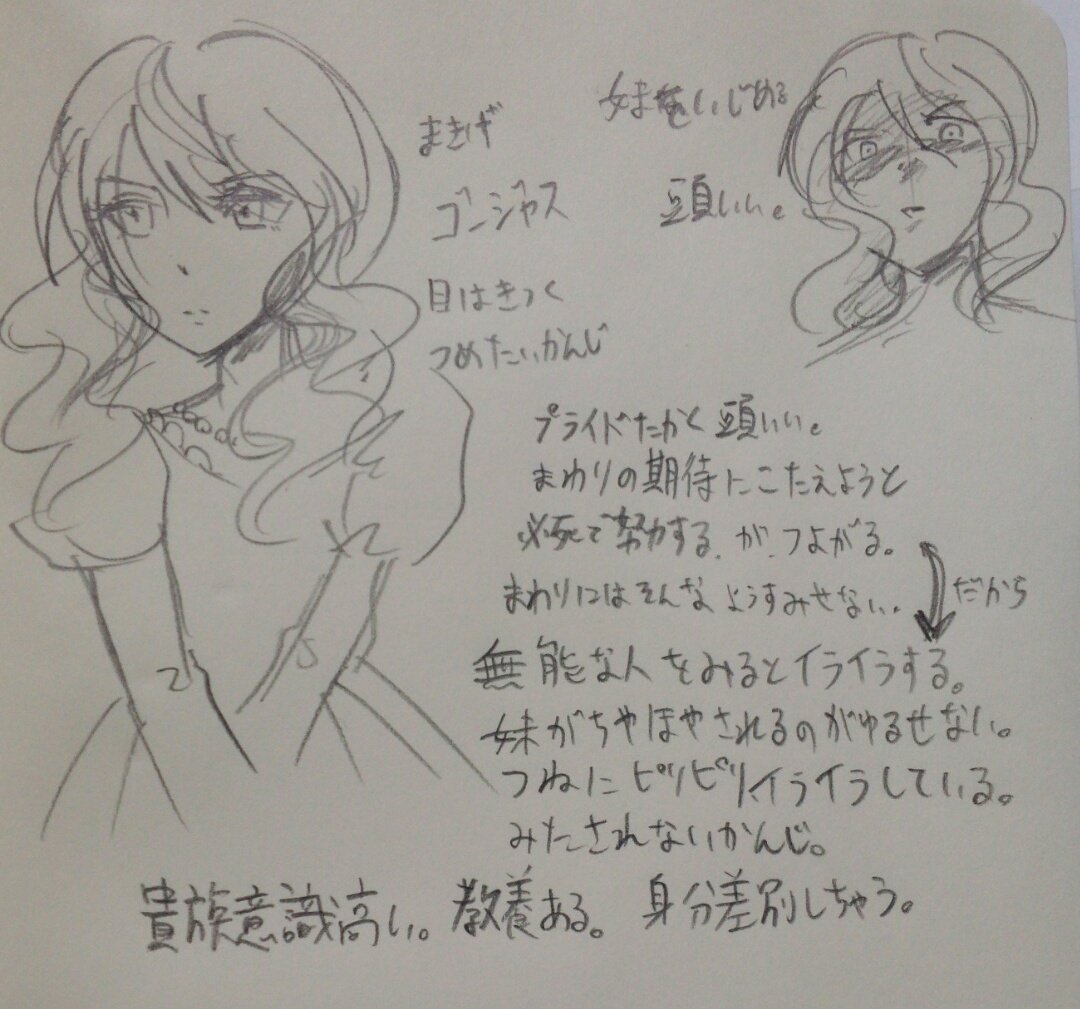 まきげ
ゴージャス
目はきつく
つめたいかんじ
妹をいじめる
頭いい。
プライドたかく頭いい。
まわりの期待にこたえようと
必死で努力する、が、つよがる。
まわりにはそんなようすみせない。
だから
無能な人をみるとイライラする。
妹がちやほやされるのがゆるせない。
つねにピリピリ、イライラしている。
みたされないかんじ。
貴族意識高い。教養ある。身分差別しちゃう。